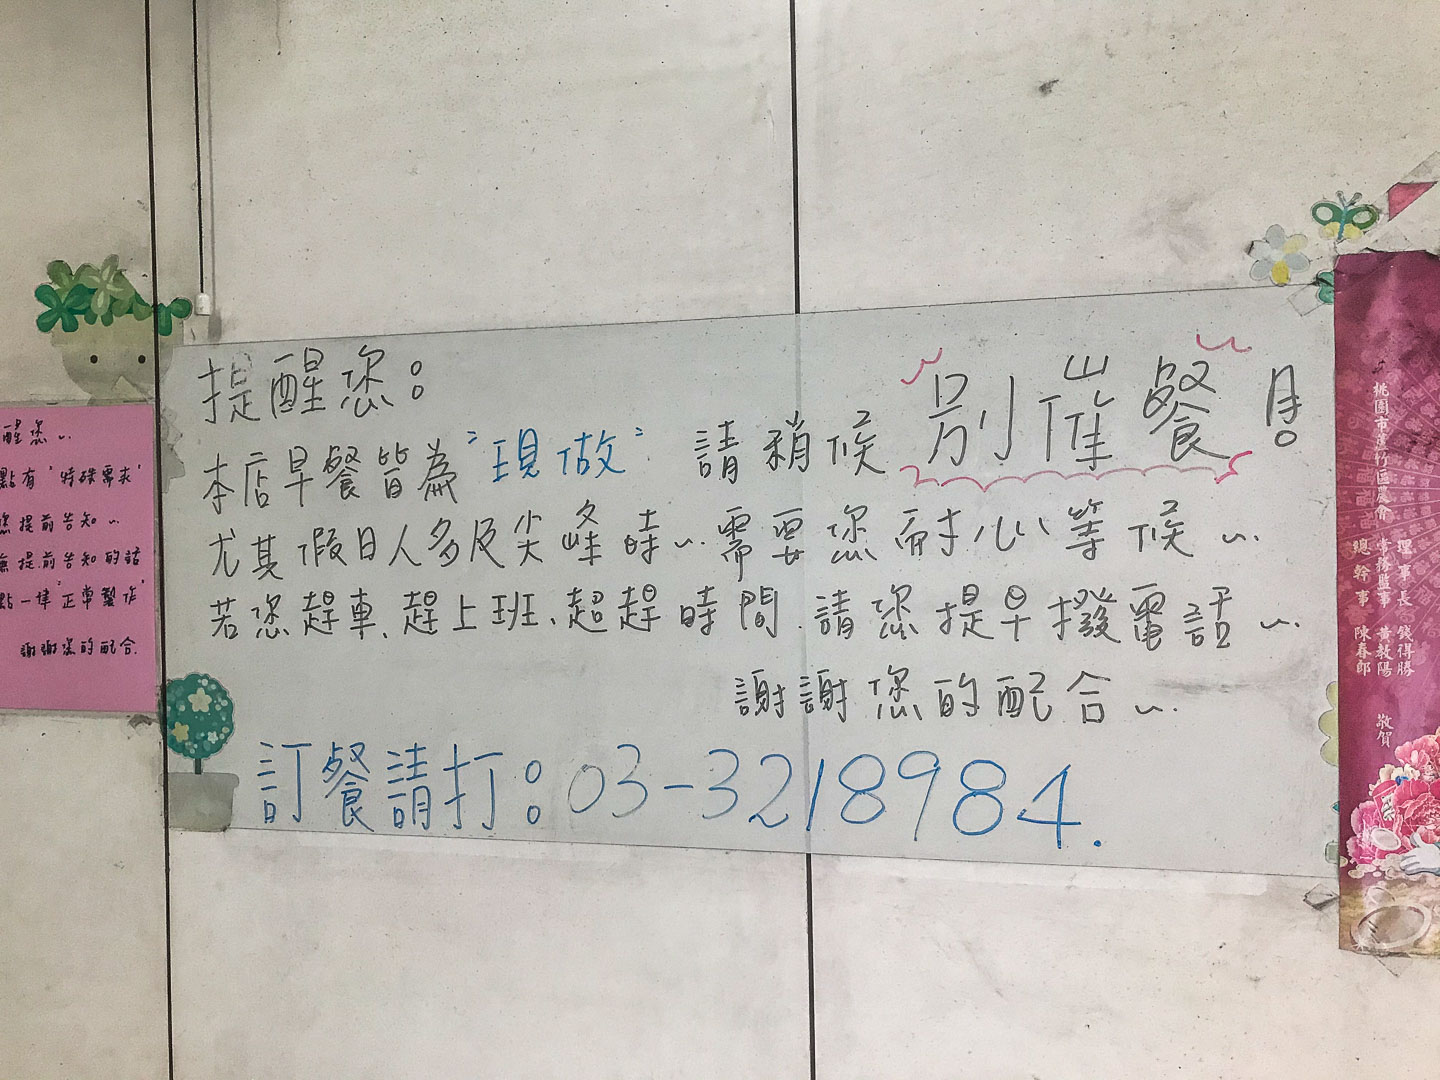 提醒您：
本店早餐皆為"現做" 請稍候 別催餐
尤其假日人多及尖峰時~需要您耐心等候~
若您趕車、趕上班、超趕時間.請您提早撥電話~
謝謝您的配合~
訂餐請打：03-3218984.
醒您~
點有"特殊需求"
您提前告知~
無提前告知的話
點一律"正常製作"
謝謝您的配合.
桃園市蘆竹區農會
理事長 錢得勝
常務監事 黃教陽
總幹事 陳春郎
敬賀